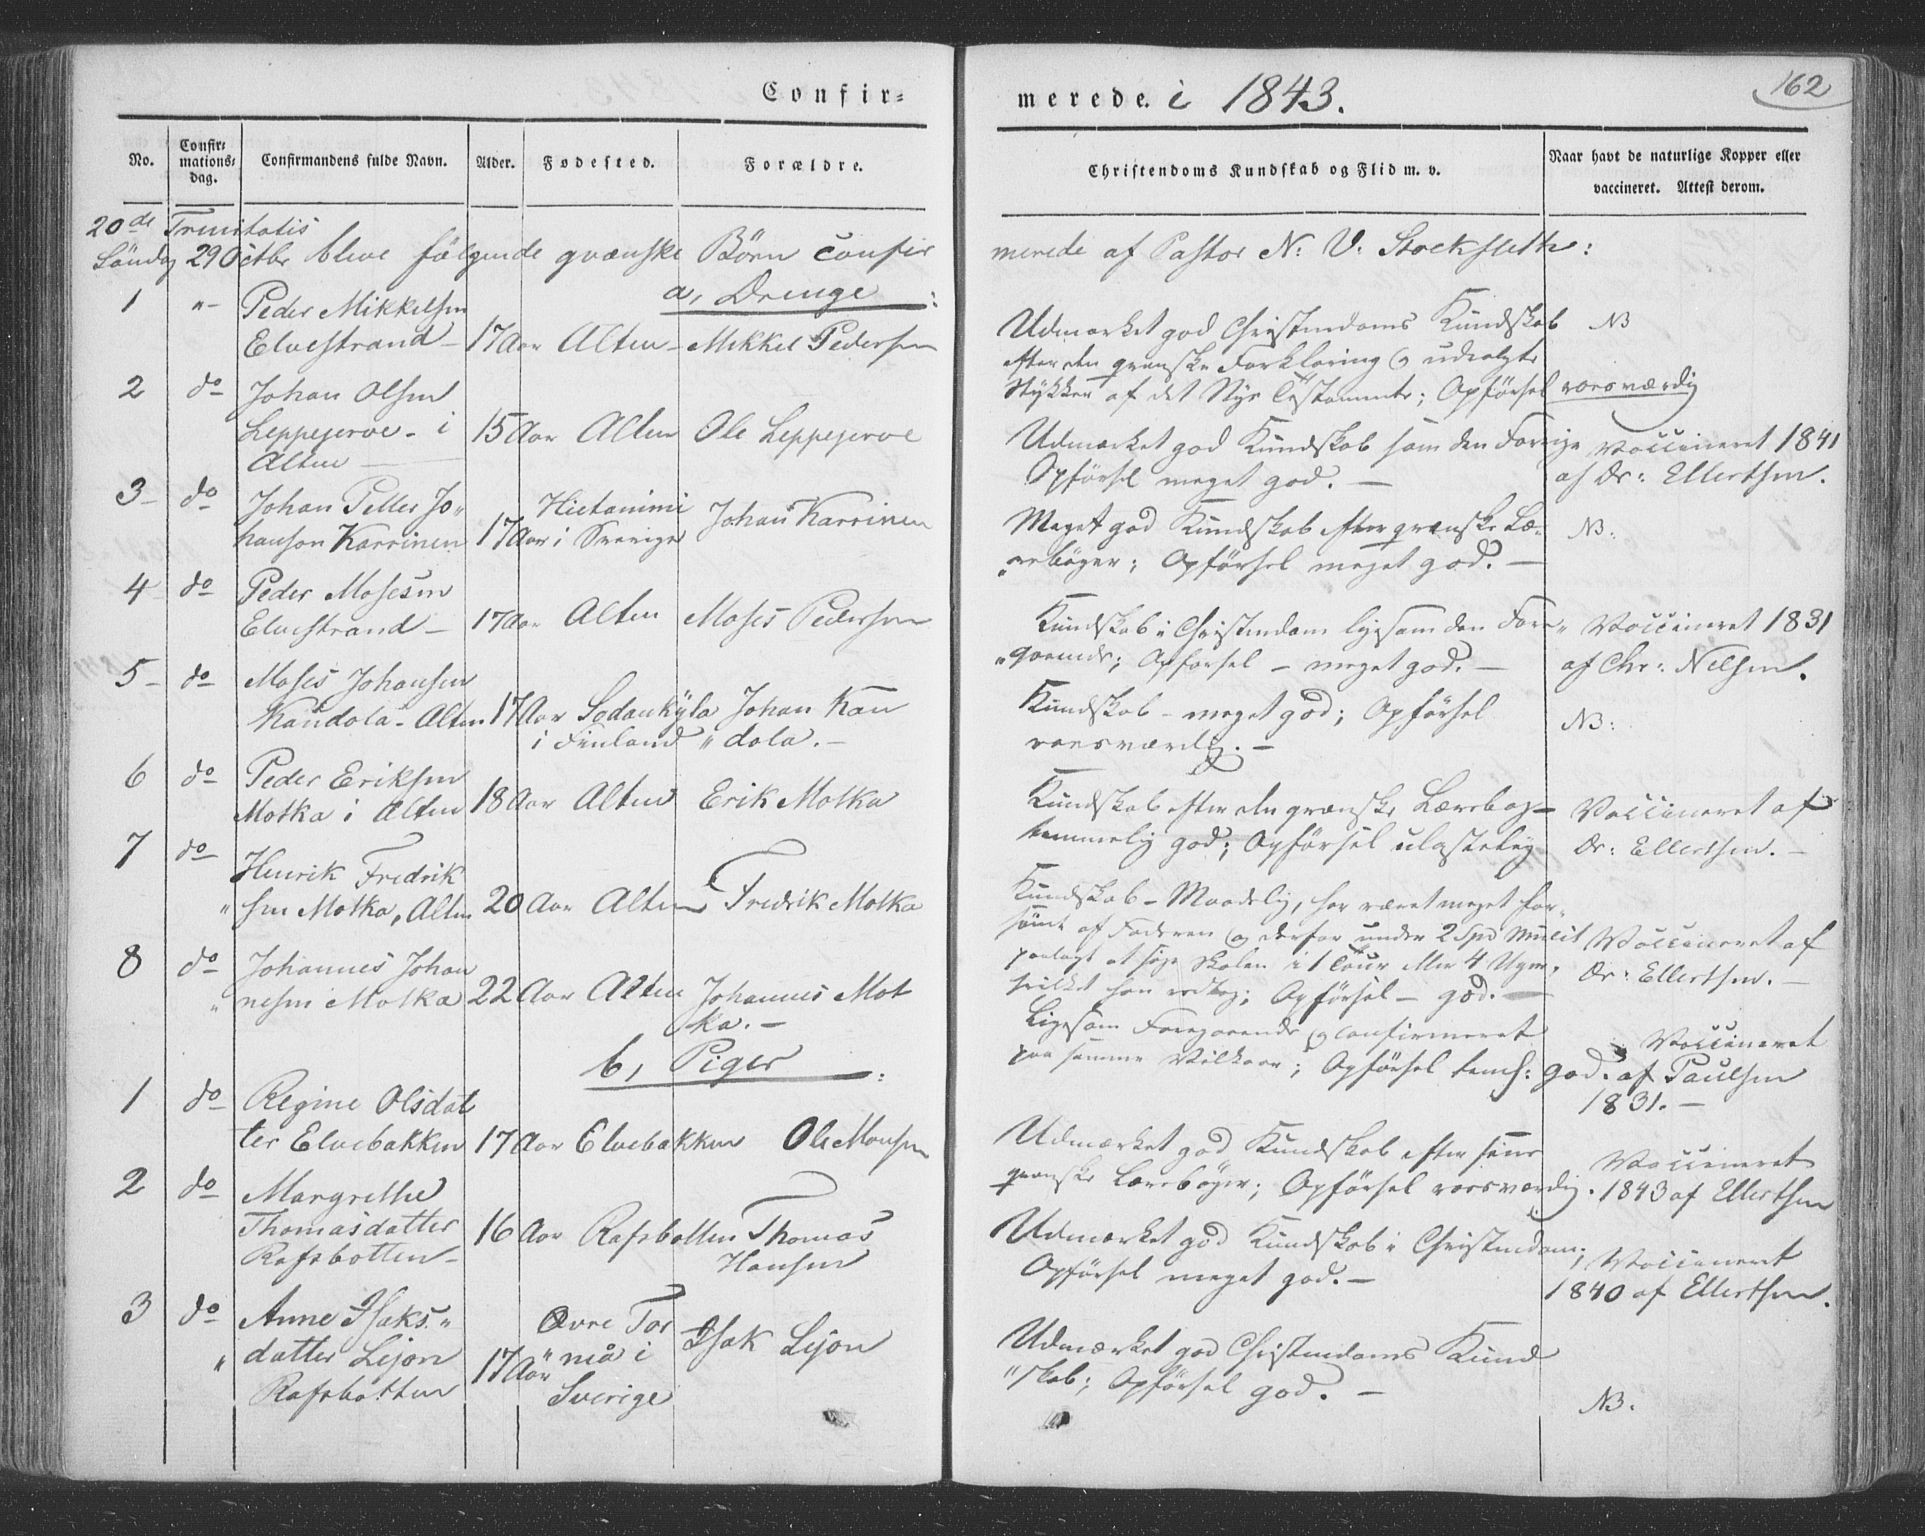 Confir=
merede. i 1843.
162
No.
Confir=
mations=
dag.
Confirmandens fulde Navn.
Alder.
Fodested.
Forældre.
Christendoms Kundskab og Flid m. v.
Naar havt de naturlige Kopper eller
vaccineret. Attest derom.
20de Trinitatis
Søndag 29 Octbr bleve følgende qvænske Børn confir
merede af Pastor N: V: Stockfleth:
a, Drenge
1 "- Peder Mikkelsen
Elvestrand - 17 Aar Alten - Mikkel Pedersen
Udmærket god Christendoms Kundskab
efter den qvenske Forklaring og udvalgte
Stykker af det Nye Testamente; Opførsel roesværdig
NB
2 do Johan Olsen
Leppejerve - i 15 Aar Alten Ole Leppejerve
Alten
Udmærket god Kundskab som den Forrige
Opførsel meget god. -
Vaccineret 1841
af Dr: Ellertsen.
3 - do Johan Petter Jo"
hanson Karrinen 17 Aar Hietaniemi
i Sverige Johan Karrinen
Meget god Kundskab efter qvenske Læ-
rebøger; Opførsel meget god. -
NB:
4 do Peder Mosesen
Elvestrand - 17 Aar Alten Moses Pedersen
Kundskab i Christendom ligesom den Fore-"
"gaaende; Opførsel - meget god. -
Vaccineret 1831
af Chr: Nelsen.
5 - do Moses Johansen
Kandola - Alten 17 Aar Sodankyla Johan Kan
i Finland "dola. -
Kundskab - meget god; Opførsel
roesværdig. -
NB:
6 do Peder Eriksen
Motka i Alten 18 Aar Alten Erik Motka
Kundskab efter den qvænske Lærebog -
temmelig god; Opførsel ulastelig
Vaccineret af
Dr: Ellertsen. -
7 do Henrik Fredrik
"sen Motka, Alten 20 Aar Alten Fredrik Motka
Kundskab - Maadelig, har været meget for-"
sømt af Faderen og derfor under 2 Spd Mulct
paalagt at søge Skolen i 1 Cour eller 4 Uger,
hvilket han vedtog; Opførsel - god. -
Vaccineret af
Dr: Ellertsen. -
8 do Johannes Johan
"nesen Motka 22 Aar Alten Johannes Mot
ka. -
Ligesom Foregaaende og confirmeret
paa samme Vilkaar; Opførsel teml: god.
Vaccineret
af Paulsen
1831. -
b, Piger
1 do Regine Olsdat
ter Elvebakken 17 Aar Elvebakken Ole Monsen
Udmærket god Kundskab efter sine
qvenske Lærebøger; Opførsel roesværdig.
Vaccineret
1843 af Ellertsen
2 do Margrethe
Thomasdatter 16 Aar Rafsbotten Thomas
Rafsbotten - Hansen
Udmærket god Kundskab i Christendom;
Opførsel meget god. -
Vaccineret
1840 af Ellertsen.
3 do Anne Isaks"
"datter Lejon 17 Aar Øvre Tor
"neå i Isak Lejon
Rafsbotten Sverige
Udmærket god Christendoms Kund
"skab; Opførsel god. -
NB.